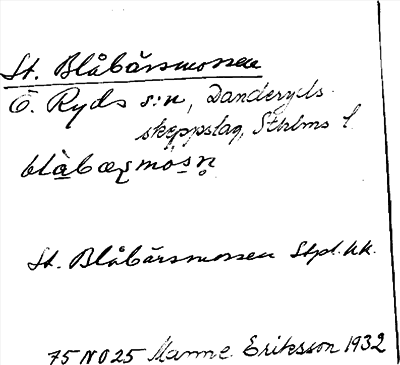 St. Blåbärsmossen
Ö. Ryds s:n, Danderyds
skeppslag, Sthlms l.
St. Blåbärsmossen Stpl. kk.
75 NO 25 Manne Eriksson 1932